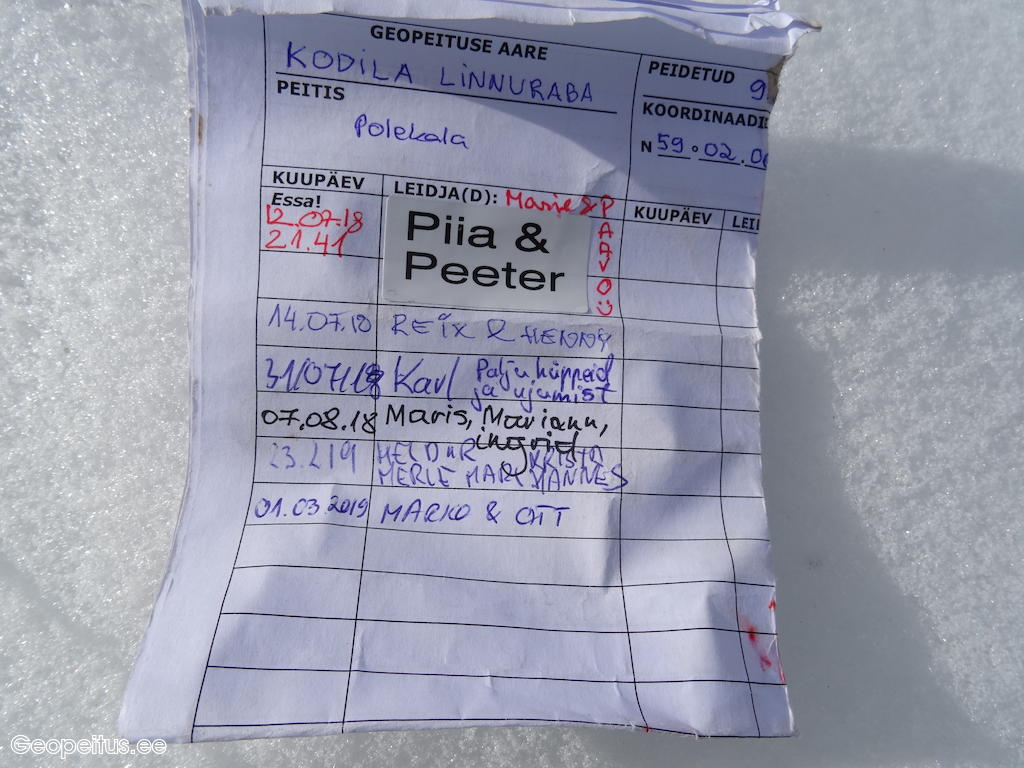 GEOPEITUSE AARE
KODILA LINNURABA
PEITIS
Polekala
PEIDETUD 9
KOORDINAADI
N 59 ° 02.0
KUUPÄEV
LEIDJA(D): Marie & PAAVO Ü
KUUPÄEV
LEI
Essa!
12.07.18
21.41
Piia &
Peeter
14.07.18 REIX & HENNY
31/07/18 Karl Palju hüppeid
ja ujumist
07.08.18 Maris, Mariann,
ingrid
23.219 HELDUR KRISTA
MERLE MARI HANNES
01.03.2019 MARKO & OTT
Geopeitus.ee